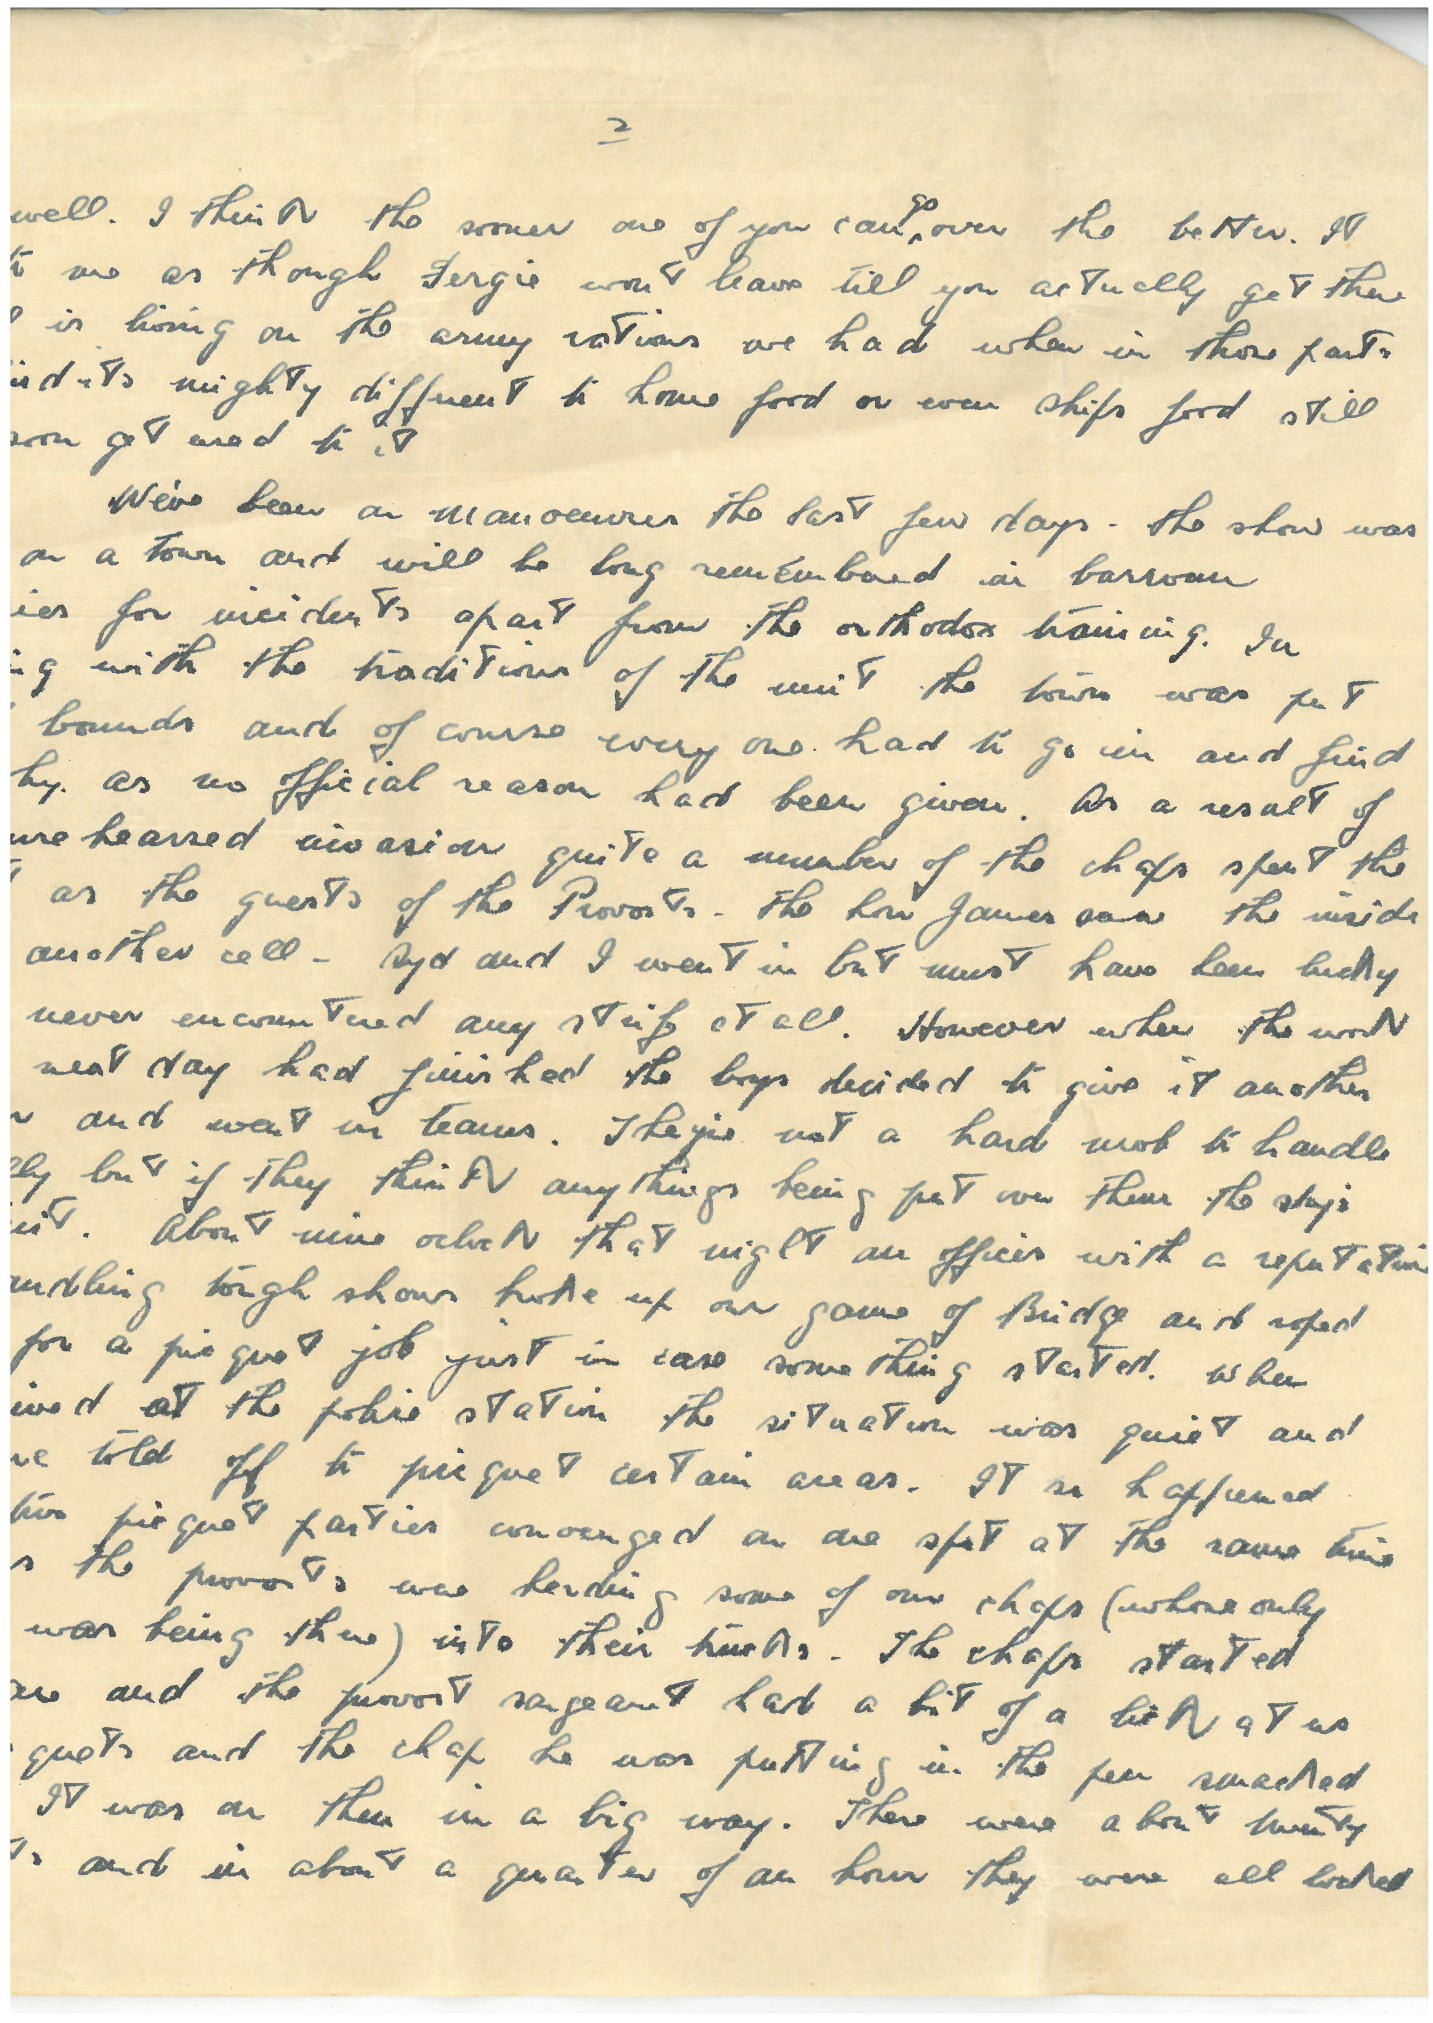 2
well. I think the sooner one of you can go over the better. It
to me as though Fergie won't leave till you actually get there
is living on the army rations we had when in those parts
its mighty diffruent to home food or even ships food still
soon get used to it
We've been on manoeuvres the last few days - the show was
on a town and will be long remembered in barroom
ies for incidents apart from the orthodox training. In
ng with the traditions of the unit the town was put
bounds and of course every one had to go in and find
hy. as no official reason had been given. As a result of
unrehearsed invasion quite a number of the chaps spent the
t as the guests of the Provosts - the hon James saw the inside
another cell - Syd and I went in but must have been lucky
never encountred any strife at all. However when the work
next day had finished the boys decided to give it another
and went in teams. They're not a hard mob to handle
lly but if they think anythings being put over them the sky's
mit. About nine oclock that night an officer with a reputation
andling tough shows broke up our game of Bridge and roped
for a picquet job just in case something started. When
ived at the police station the situation was quiet and
re told off to picquet certain areas. It so happened
two picquet parties converged on one spot at the same time
s the provosts were herding some of our chaps (whose only
was being there) into their trucks. The chaps started
and the provost sargeant had a bit of a bite at us
quets and the chap he was putting in the pen smacked
It was on then in a big way. There were about twenty
ts and in about a quarter of an hour they were all locked